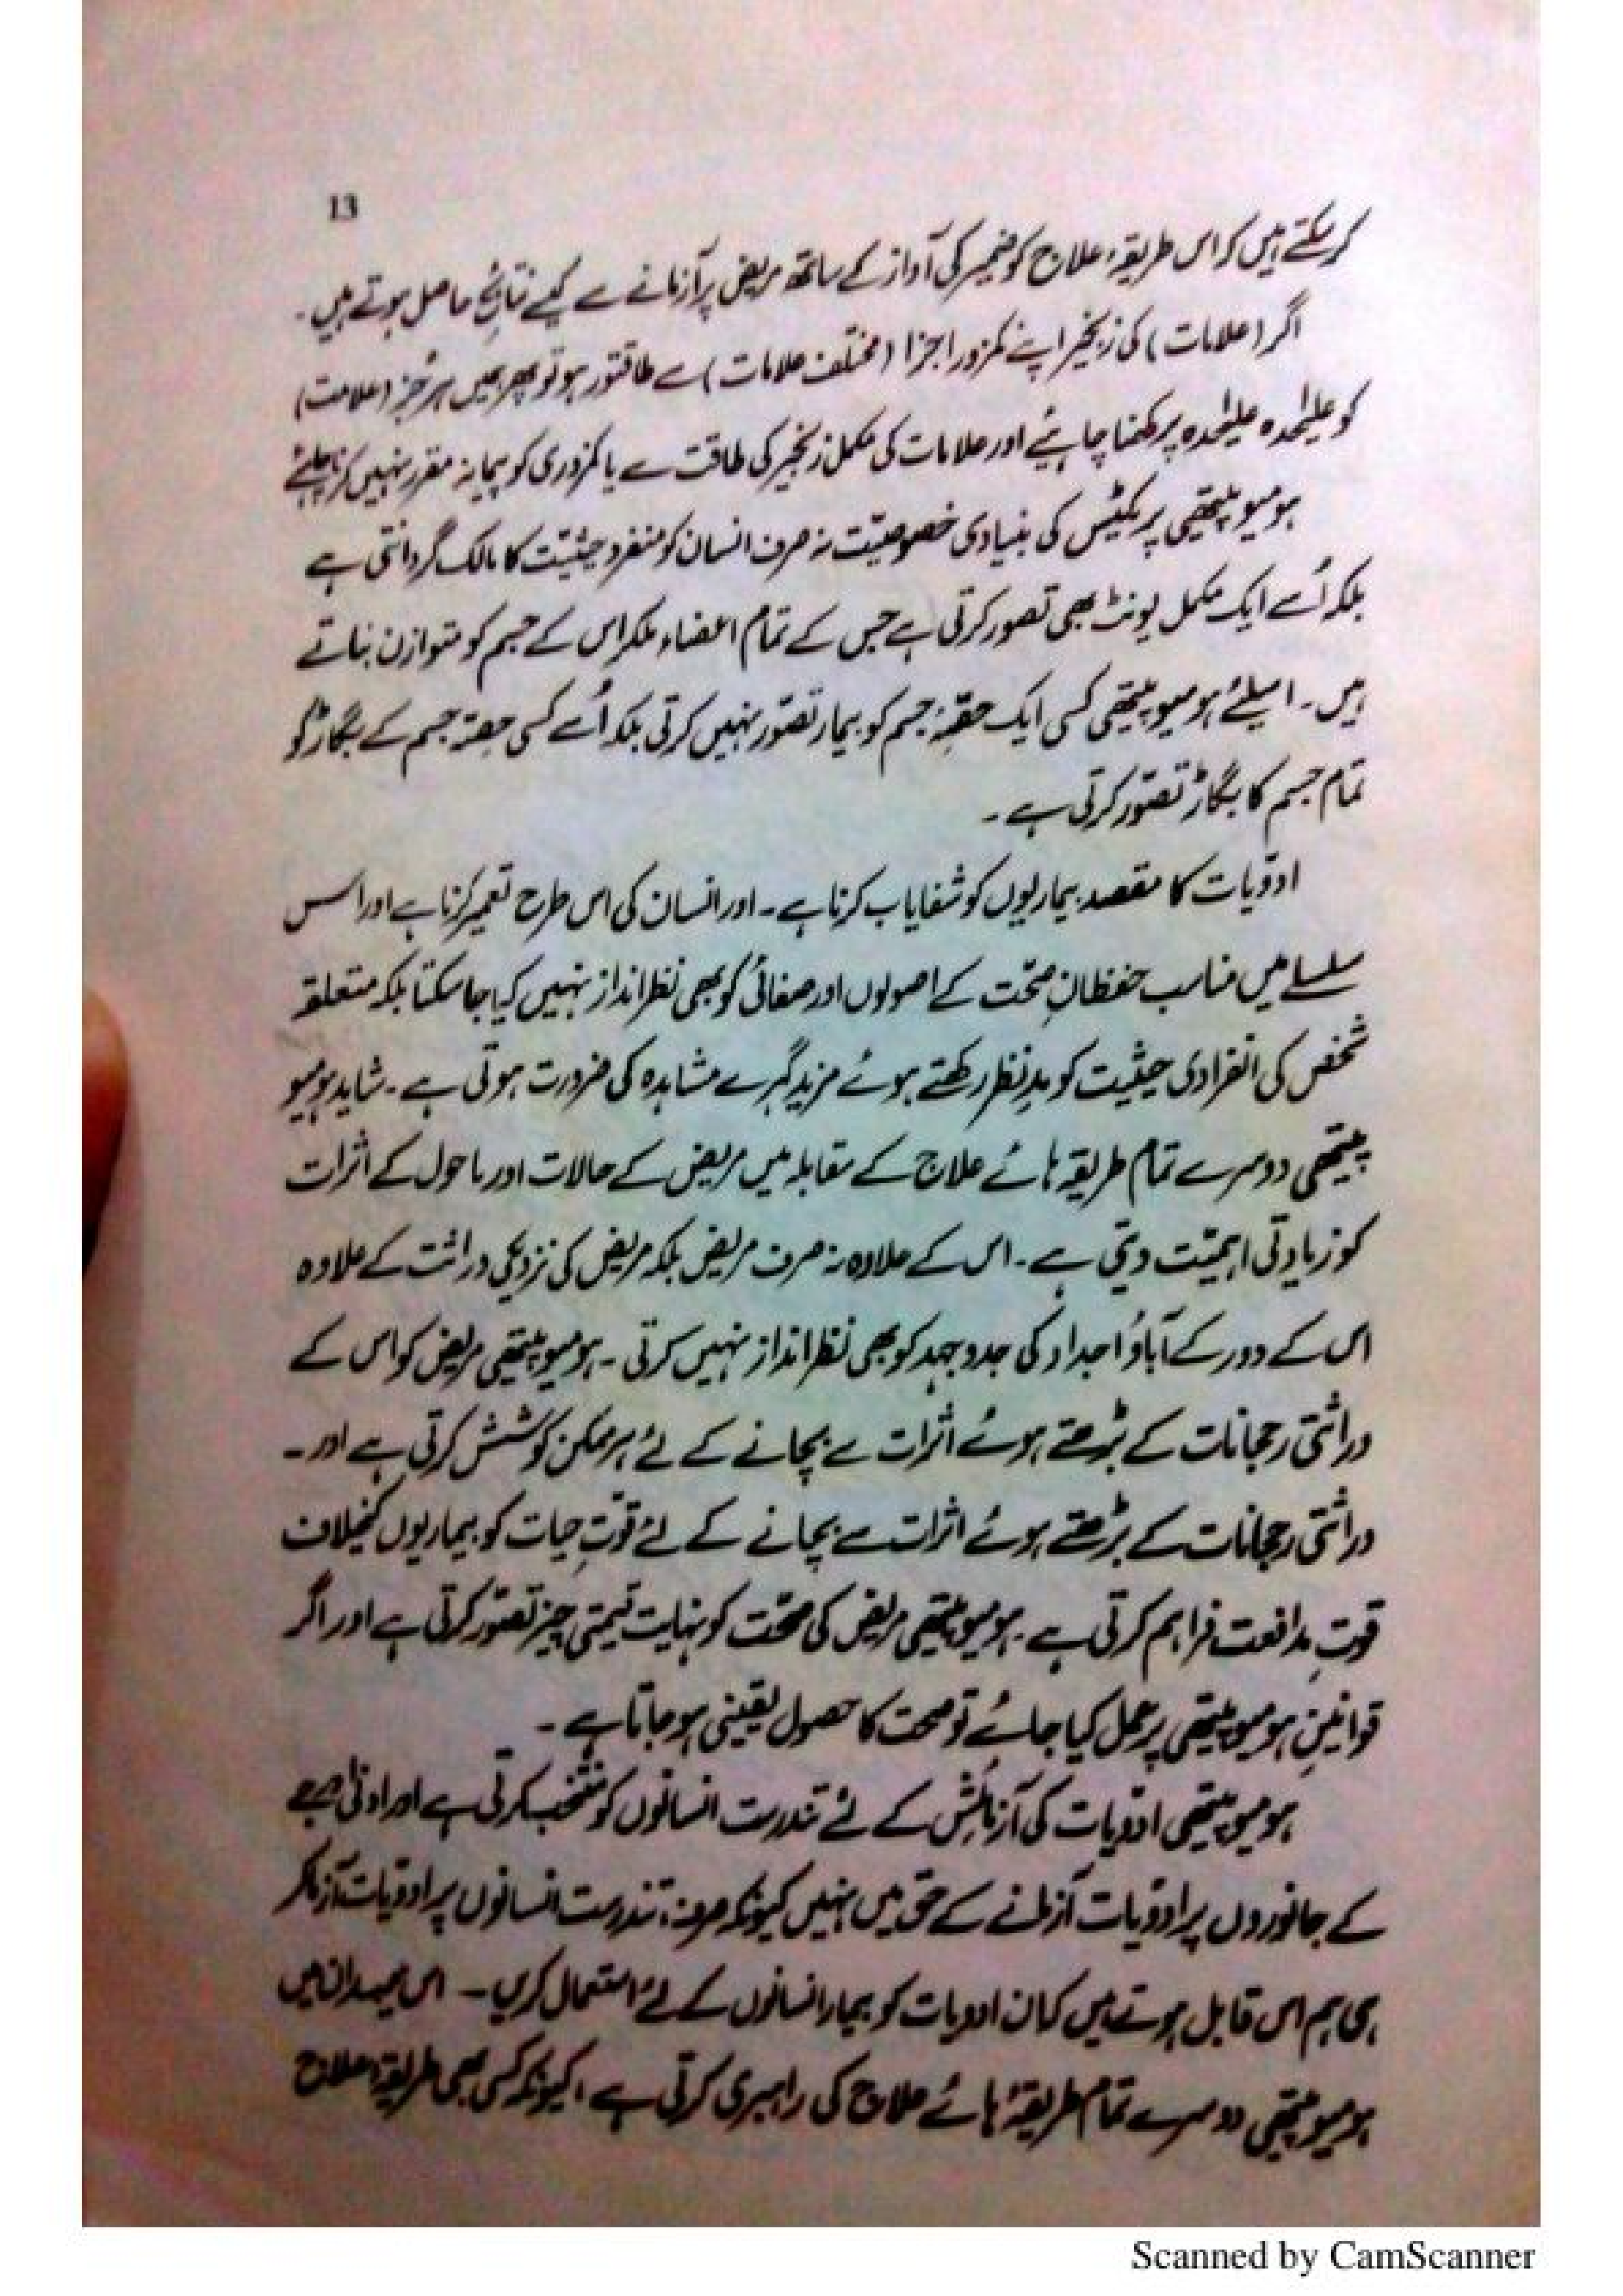 13
کر سکتے ہیں کہ اس طریقہء علاج کو ضمیر کی آواز کے ساتھ مریض پر آزمانے سے کیسے نتائج حاصل ہوتے ہیں۔
اگر (علامات) کی زنجیر اپنے کمزور اجزا (مختلف علامات) سے طاقتور ہو تو پھر ہمیں ہر جُز (علامت)
کو علیٰحدہ علیٰحدہ پرکھنا چاہئیے اور علامات کی مکمل زنجیر کی طاقت سے یا کمزوری کو پیمانہ مقرر نہیں کرنا چاہئے
ہومیوپیتھی پریکٹیس کی بنیادی خصوصیّت نہ صرف انسان کو منفرد حیثیّت کا مالک گردانتی ہے
بلکہ اُسے ایک مکمل یونٹ بھی تصور کرتی ہے جس کے تمام اعضاء ملکر اس کے جسم کو متوازن بناتے
ہیں۔ اسیلئے ہومیوپیتھی کسی ایک حصّہء جسم کو بیمار تصّور نہیں کرتی بلکہ اُسے کسی حصّہ جسم کے بگاڑ کو
تمام جسم کا بگاڑ تصّور کرتی ہے۔
ادوّیات کا مقصد بیماریوں کو شفایاب کرنا ہے۔ اور انسان کی اس طرح تعمیر کرنا ہے اور اسس
سلسلے میں مناسب حفظانِ صحّت کے اصولوں اور صفائی کو بھی نظر انداز نہیں کیا جا سکتا بلکہ متعلقہ
شخص کی انفرادی حیثیت کو مدِنظر رکھتے ہوئے مزید گہرے مشاہدہ کی ضرورت ہوتی ہے۔ شاید ہومیو
پیتھی دوسرے تمام طریقہ ہائے علاج کے مقابلہ میں مریض کے حالات اور ماحول کے اثرات
کو زیادتی اہمیّت دیتی ہے۔ اس کے علاوہ نہ صرف مریض بلکہ مریض کی نزدیکی وراثت کے علاوہ
اس کے دور کے آباؤ اجداد کی جدوجہد کو بھی نظر انداز نہیں کرتی۔ ہومیوپیتھی مریض کو اس کے
وراثتی رحجانات کے بڑھتے ہوئے اثرات سے بچانے کے لئے ہر ممکن کوشش کرتی ہے اور۔
وراثتی رحجانات کے بڑھتے ہوئے اثرات سے بچانے کے لئے قوّتِ حیات کو بیماریوں کیخلاف
قوتِ مدافعت فراہم کرتی ہے۔ ہومیوپیتھی مریض کی صحّت کو نہایت قیمتی چیز تصّور کرتی ہے اور اگر
قوانینِ ہومیوپیتھی پر عمل کیا جائے تو صحت کا حصول یقینی ہو جاتا ہے۔
ہومیوپیتھی ادوّیات کی آزمائش کے لئے تندرست انسانوں کو منتخب کرتی ہے اور ادنیٰ درجے
کے جانوروں پر ادوّیات آزمانے کے حق میں نہیں کیونکہ صرف تندرست انسانوں پر ادوّیات آزما کر
ہی ہم اس قابل ہوتے ہیں کہ ان ادویات کو بیمار انسانوں کے لئے استعمال کریں۔ اس میدان میں
ہومیوپیتھی دوسرے تمام طریقۂ ہائے علاج کی راہبری کرتی ہے، کیونکہ کسی بھی طریقۂ علاج
Scanned by CamScanner